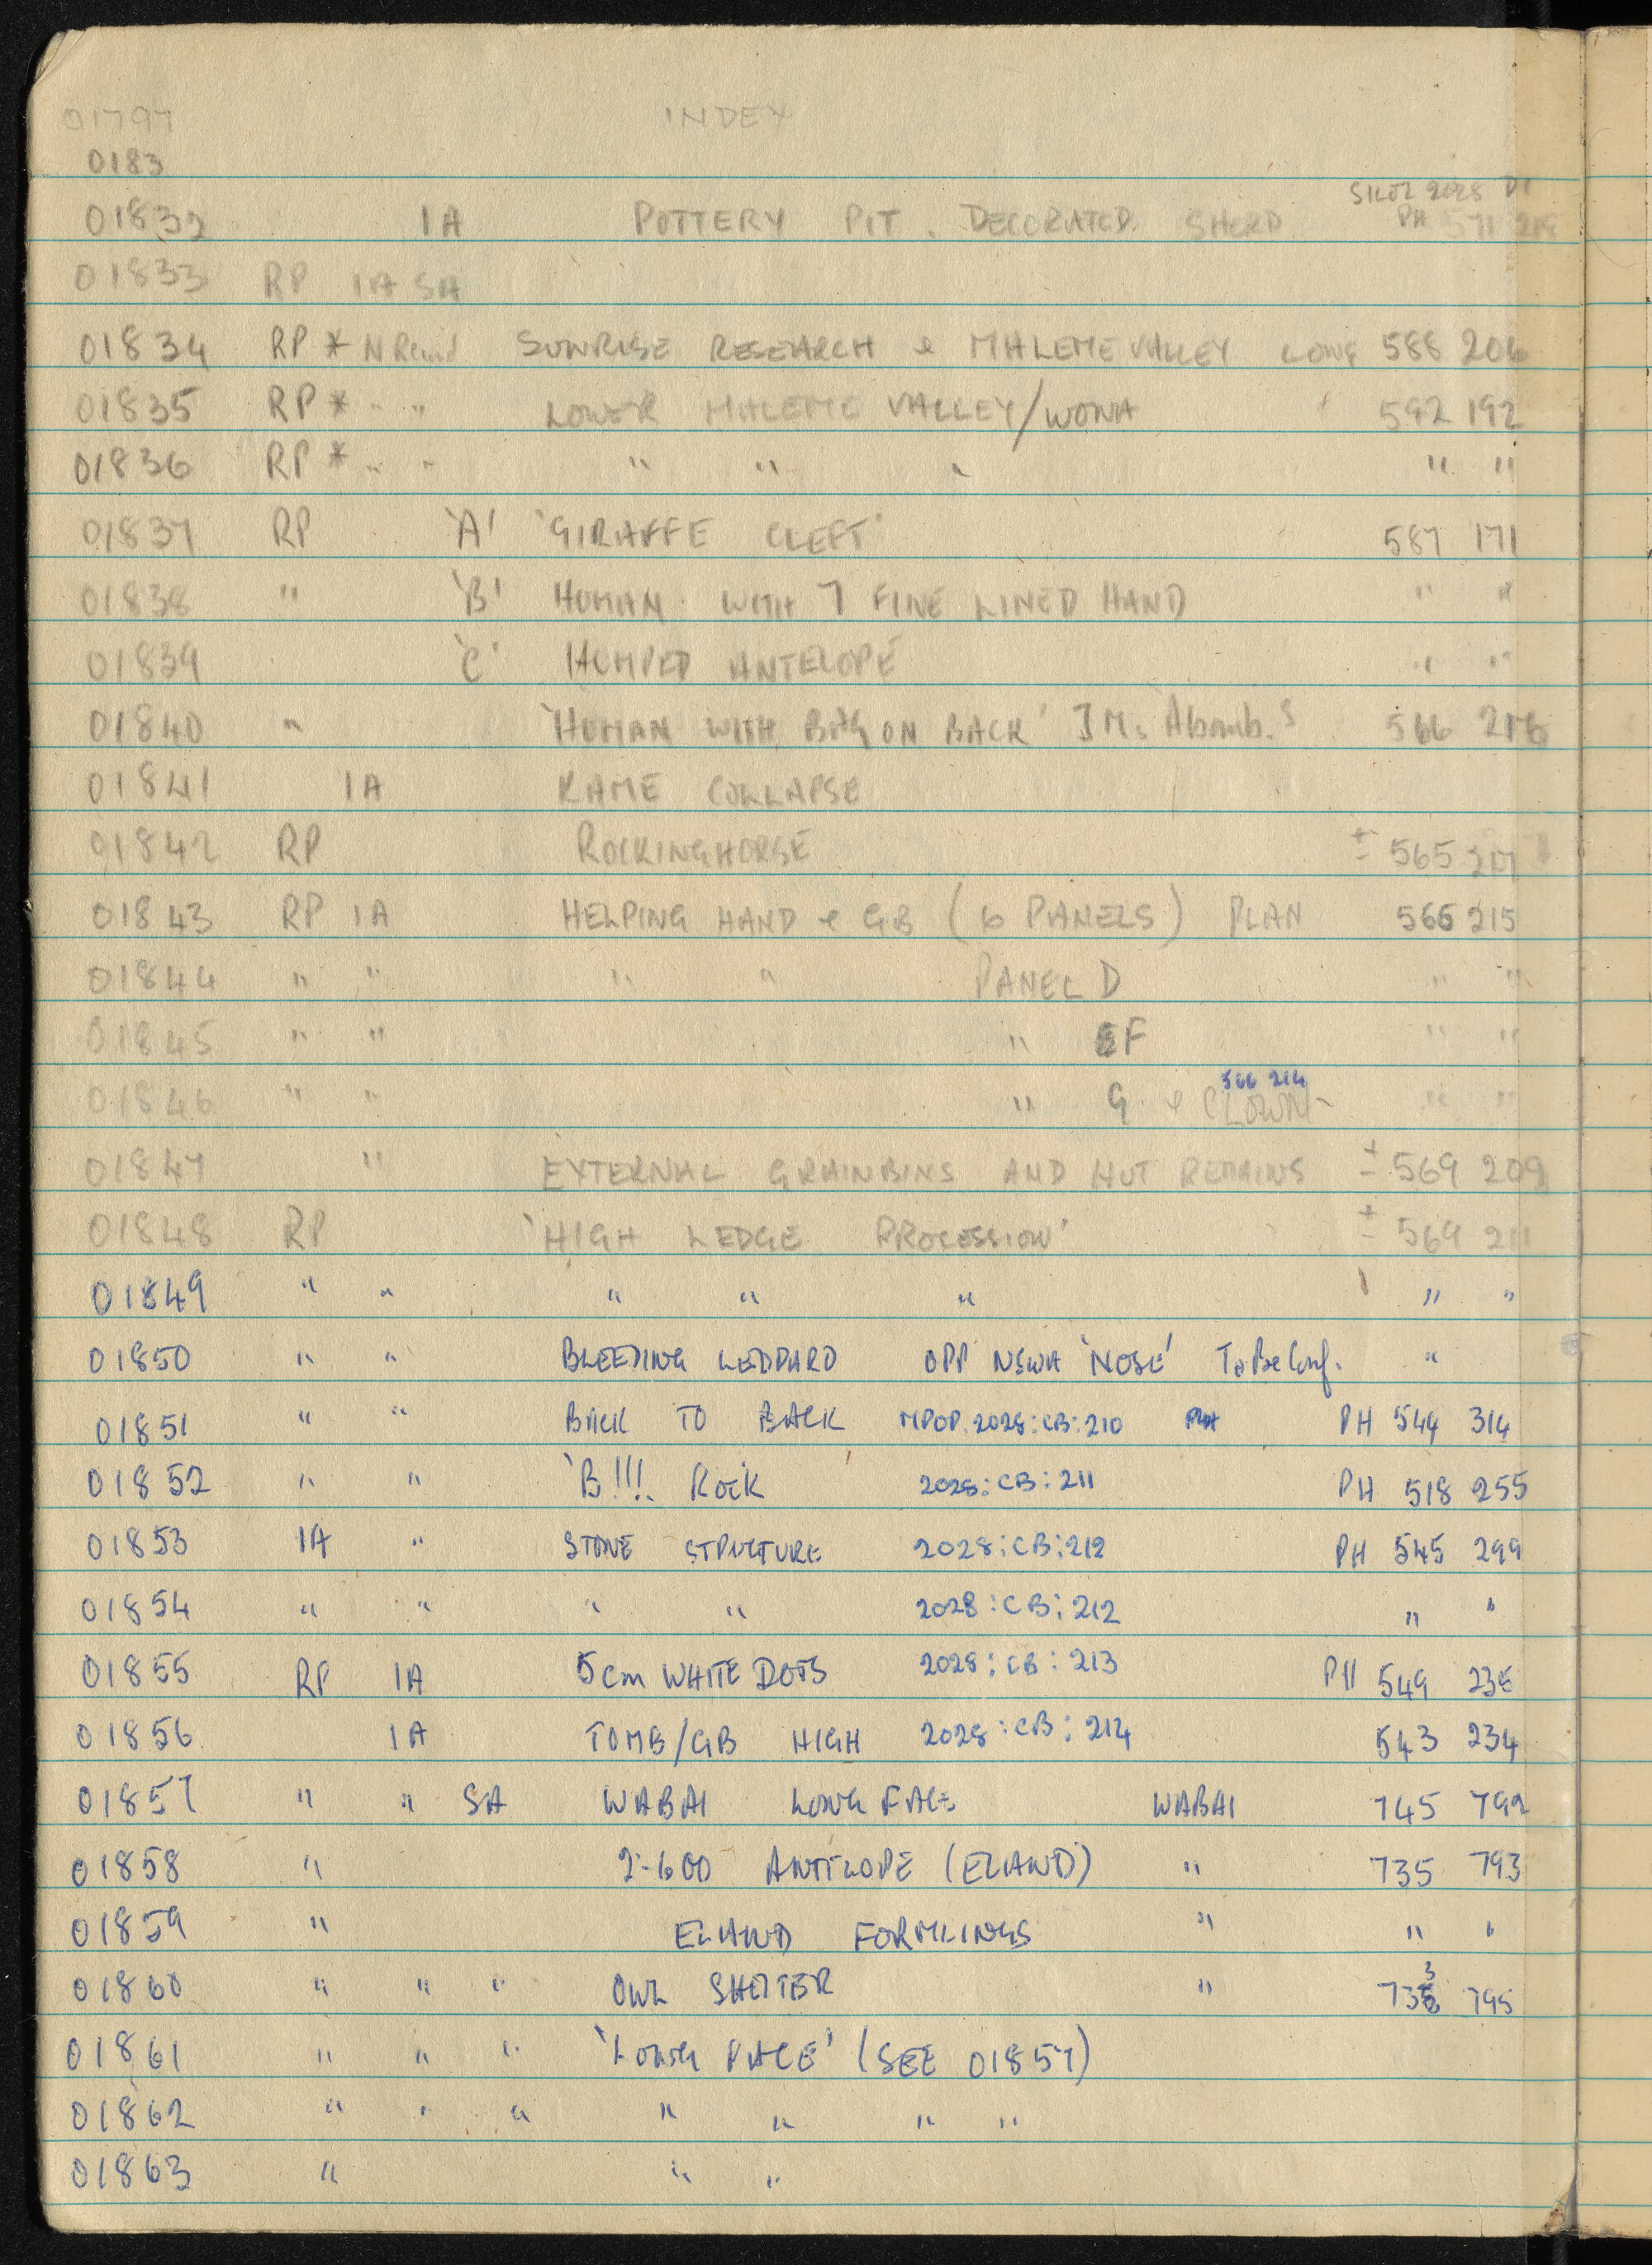 01797 INDEX
0183
01832 IA POTTERY PIT. DECORATED SHERD PH 571
01833 RP IA SA
01834 RP * SUNRISE RESEARCH & MHLEME VALLEY LONG 588 206
01835 RP * " " LOWER MHLEME VALLEY/WONA 592 192
01836 RP * " " " " " " "
01837 RP 'A' 'GIRAFFE CLEFT' 587 171
01838 " 'B' HUMAN WITH 7 FINE LINED HAND " "
01839 'C' HUMPED ANTELOPE " "
01840 " 'HUMAN WITH BAG ON BACK' 566 216
01841 IA KAME COLLAPSE
01842 RP ROCKINGHORSE ± 565 217
01843 RP IA HELPING HAND & GB (6 PANELS) PLAN 566 215
01844 " " " " PANEL D " "
01845 " " " EF " "
566 214
01846 " " " G & CLOWN " "
01847 " EXTERNAL GRAINBINS AND HUT REMAINS ± 569 209
01848 RP 'HIGH LEDGE PROCESSION' ± 569 211
01849 " " " " " " "
01850 " " BLEEDING LEOPARD OPP NSWA 'NOSE' To Be Conf. "
01851 " " BACK TO BACK MPOP. 2028:CB:210 PH 544 314
01852 " " 'B!!!. Rock 2028:CB:211 PH 518 255
01853 IA " STONE STRUCTURE 2028:CB:212 PH 545 299
01854 " " " " 2028:CB:212 " "
01855 RP IA 5cm WHITE DOTS 2028:CB:213 PH 549 235
01856 IA TOMB/GB HIGH 2028:CB:214 543 234
01857 " " SA WABAI LONG FACE WABAI 745 792
01858 " 2-600 ANTELOPE (ELAND) " 735 793
01859 " ELAND FORMLINGS " " "
01860 " " " OWL SHELTER " 733 795
01861 " " " 'LONG FACE' (SEE 01857)
01862 " " " " " " "
01863 " " "